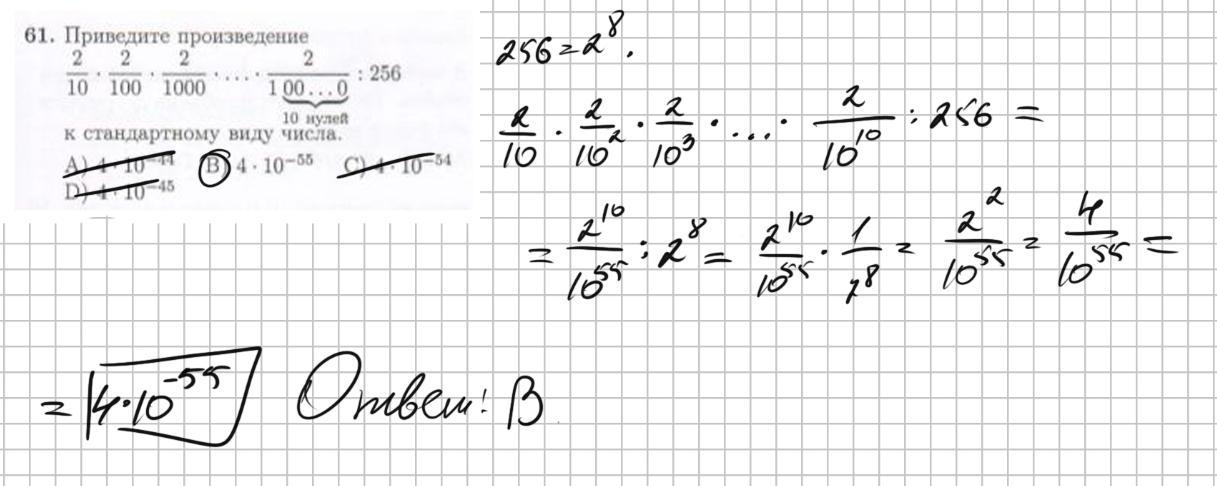 61. Приведите произведение
2/10 · 2/100 · 2/1000 · .... · 2/1 00...0 : 256
10 нулей
к стандартному виду числа.
A) 4 · 10⁻⁴⁴ B) 4 · 10⁻⁵⁵ C) 4 · 10⁻⁵⁴
D) 4 · 10⁻⁴⁵
256 = 2⁸.
2/10 · 2/10² · 2/10³ · ... · 2/10¹⁰ : 256 =
= 2¹⁰/10⁵⁵ : 2⁸ = 2¹⁰/10⁵⁵ · 1/2⁸ = 2²/10⁵⁵ = 4/10⁵⁵ =
= 4·10⁻⁵⁵ Ответ: B